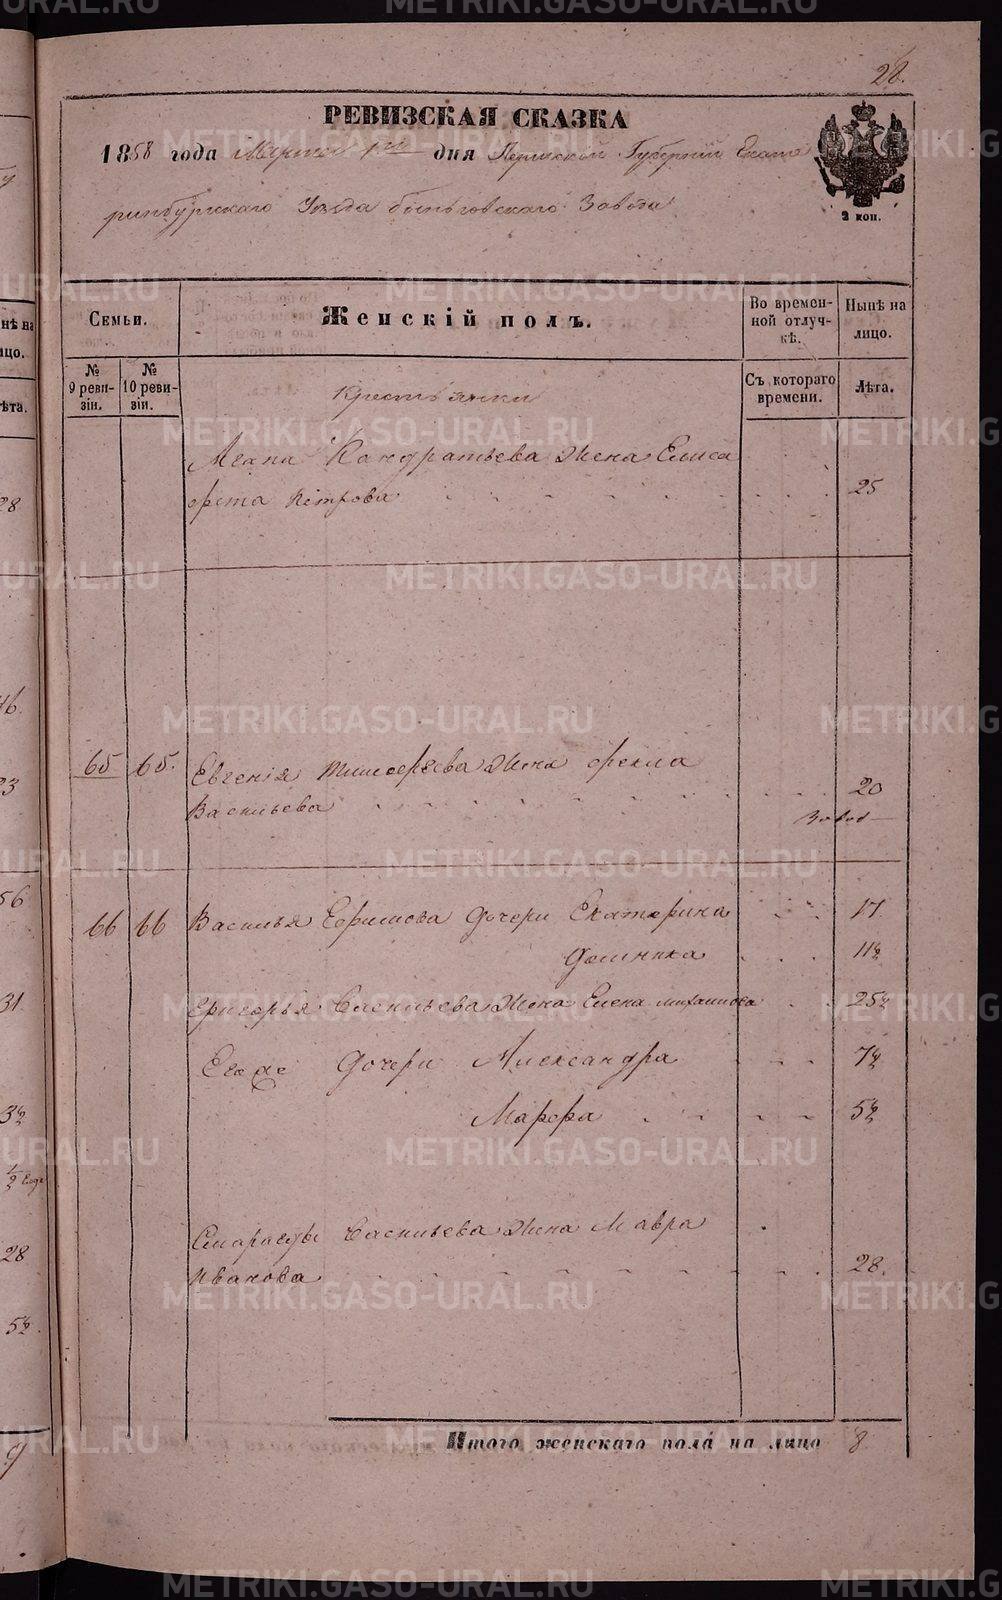 28.
РЕВИЗСКАЯ СКАЗКА
1858 года Марта 1го дня Пермской Губернии Екате
ринбургскаго Уезда быньговскаго Завода
2 коп.
Семьи.
Женскій полъ.
Во времен-
ной отлуч-
кѣ.
Нынѣ на
лицо.
№
9 реви-
зіи.
№
10 реви-
зіи.
Съ котораго
времени.
Лѣта.
Крестьянки
Кандратьева Жена Елиса
фета Петрова 25
65 65. Евгения Тимофеева Жена фекла
Васильева 20
Завод
66 66 Василья Ефимова дочери Екатерина 17
Домника 11½
Григорья Васильева Жена Елена михаилова 25½
Егоже Дочери Александра 7½
Марфа 5½
Васильева Жена Мавра
Иванова 28.
Итого женскаго пола на лицо 8
METRIKI.GASO-URAL.RU